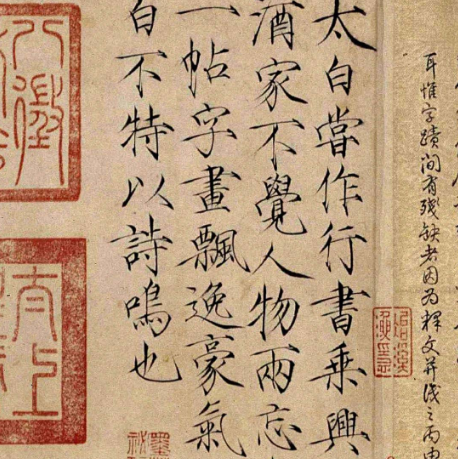 耳惟字蹟間有殘缺者因為釋文并識之丙
太白嘗作行書乘興
酒家不覺人物兩忘
一帖字畫飄逸豪氣
白不特以詩鳴也